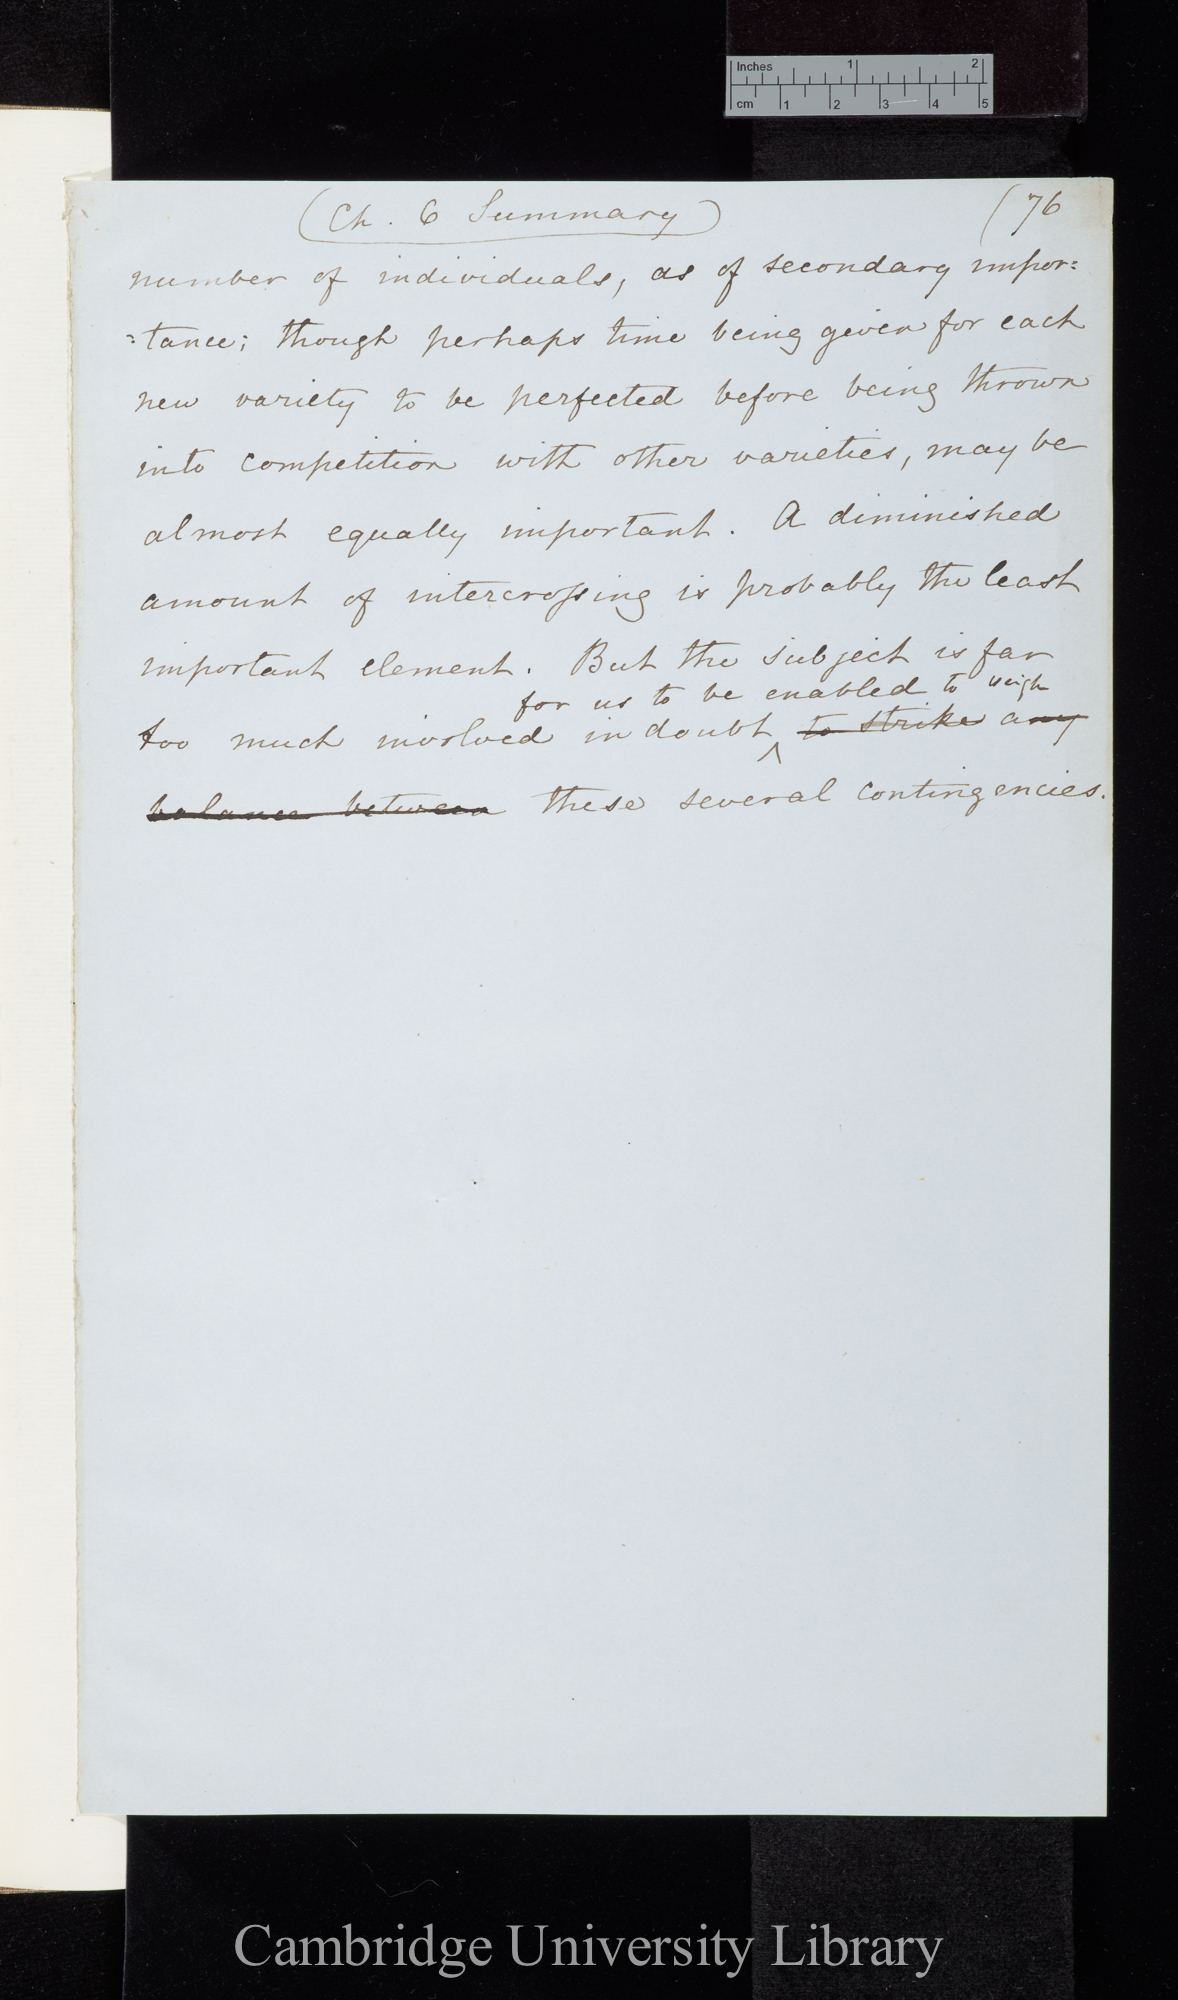 Inches 1 2
cm 1 2 3 4 5
(Ch. 6 Summary)
(76
number of individuals, as of secondary impor:
:tance; though perhaps time being given for each
new variety to be perfected before being thrown
into competition with other varieties, may be
almost equally important. A diminished
amount of intercrossing is probably the least
important element. But the subject is far
for us to be enabled to weigh
too much involved in doubt ^ to strike any
balance between these several contingencies.
Cambridge University Library